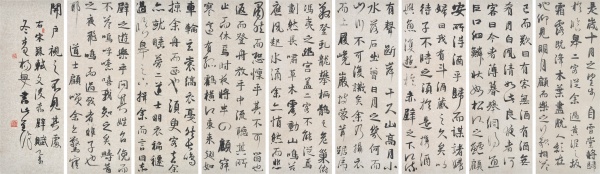 是歲十月之望步自雪堂將歸
于臨皋二客從余過黃泥之坂
霜露既降木葉盡脫人影在
地仰見明月顧而樂之行歌相答
已而歎曰有客無酒有酒無
肴月白風清如此良夜何客
曰今者薄暮舉網得魚
巨口細鱗狀如松江之鱸顧
安所得酒乎歸而謀諸婦
婦曰我有斗酒藏之久矣以
待子不時之需於是攜酒
與魚復遊於赤壁之下江流
有聲斷岸千尺山高月小
水落石出曾日月之幾何而
江山不可復識矣余乃攝衣
而上履巉巖披蒙茸踞虎
豹登虬龍攀栖鶻之危巢俯
馮夷之幽宮蓋二客不能從焉
劃然長嘯草木震動山鳴谷應
風起水涌余亦悄然而悲
肅然而恐凜乎其不可留也
反而登舟放乎中流聽其所止
而休焉時夜將半四顧寂
寥適有孤鶴橫江東來翅如
車輪玄裳縞衣戛然長鳴
掠余舟而西也須臾客去余
亦就睡夢二道士羽衣蹁躚
過臨皋之下揖余而言曰赤
壁之遊樂乎問其姓名俛而
不答嗚呼噫嘻我知之矣疇昔
之夜飛鳴而過我者非子也
耶道士顧笑余亦驚寤
開戶視之不見其處
右宋蘇軾文後赤壁賦